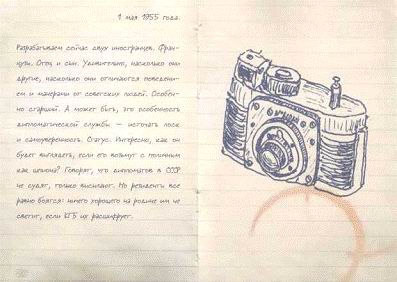 1 мая 1955 года.
Разрабатываем сейчас двух иностранцев. Фран-
цузы. Отец и сын. Удивительно, насколько они
другие, насколько они отличаются поведени-
ем и манерами от советских людей. Особен-
но старший. А может быть, это особенность
дипломатической службы — источать лоск
и самоуверенность. Статус. Интересно, как он
будет выглядеть, если его возьмут с поличным
как шпиона? Говорят, что дипломатов в СССР
не судят, только высылают. Но резиденты все
равно боятся: ничего хорошего на родине им не
светит, если КГБ их расшифрует.